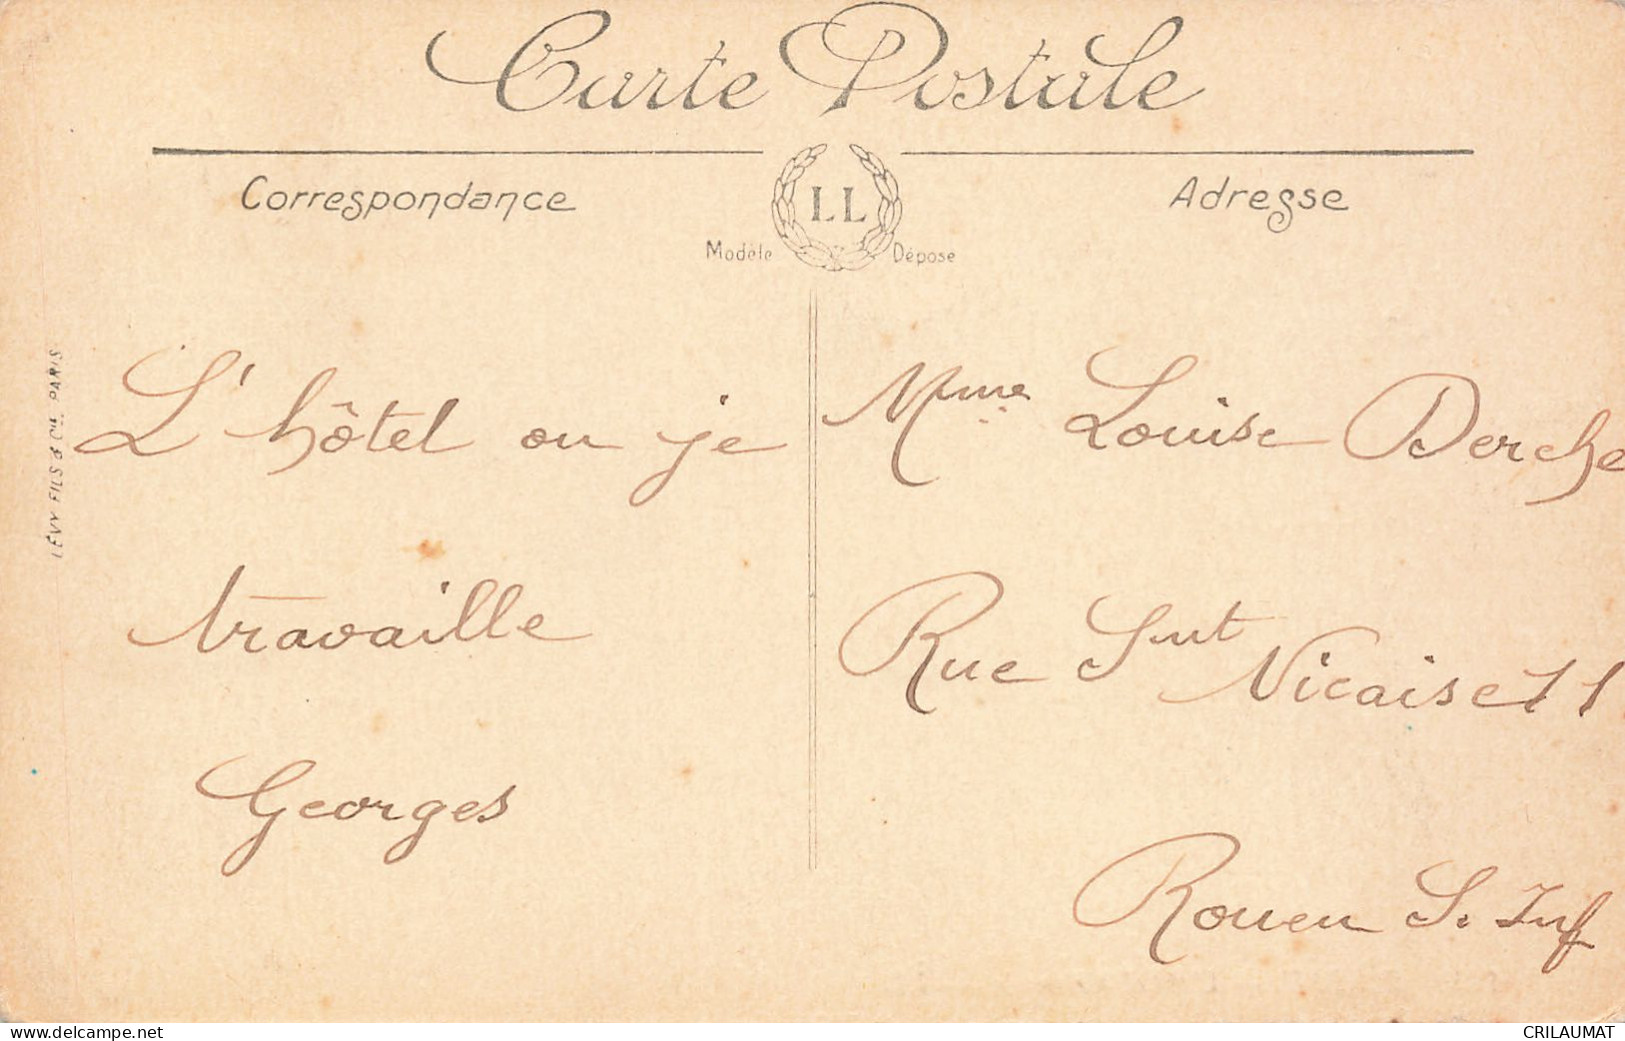 Carte Postale
Correspondance
LL
Modèle Déposé
Adresse
LÉVY FILS & Cie. PARIS
L'hôtel ou je
travaille
Georges
Mme Louise Derche
Rue Snt Nicaise 11
Rouen S. Inf
www.delcampe.net
CRILAUMAT